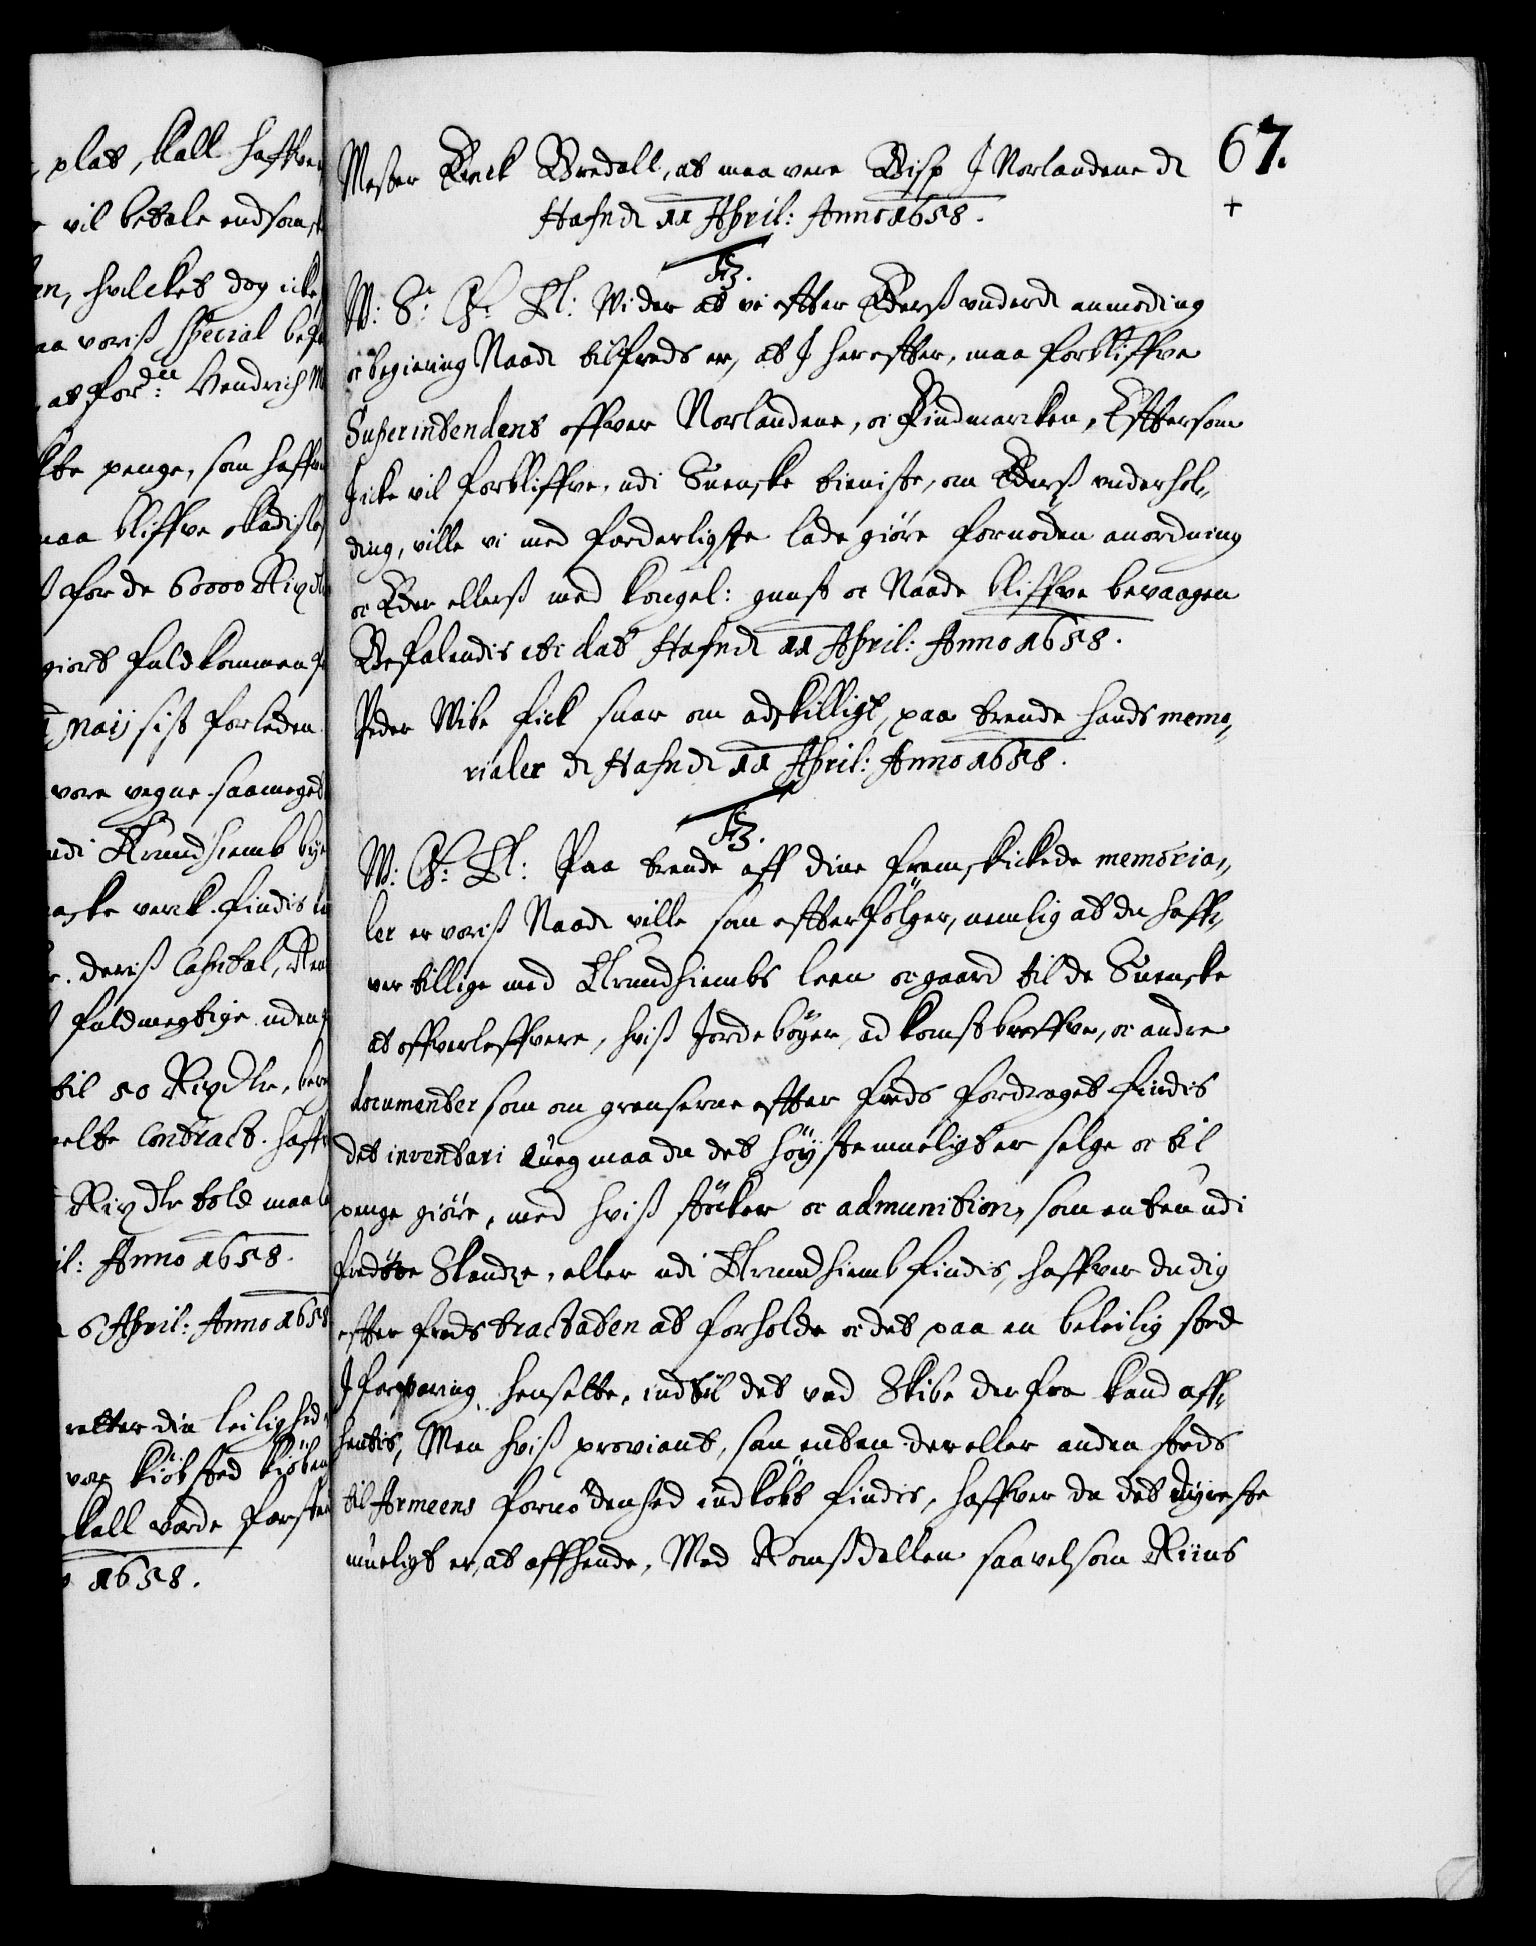 plat, skall haffve
vil betale endsom
en, huilcket dog icke
aa voriß special bef
at for:ne Hendrich M
lte penge, som haffve
maa bliffve skadisløs
for de 60000 Rixdl
giort fuldkommen
Maij sist forleden
vore vegne saameget
udi Trundhiemb bye
aske verck findis
deriß Capital, Ren
fuldmegtige uden
til 50 Rixdlr, ber
elte Contract haff
Rixdlr told maa
il: Anno 1658.
6 April: Anno 1658
retter din leilighed
vor kiøbsted kiøben
skall vorde forsten
1658.
67.
+
Mester Erick Bredall, at maa vere Bisp J Norlandene de
Hafn de 11 April: Anno 1658.
F3.
W: S: G: T: Wider at vi efftter Ederß underde anmoding
oc begiering Naade tilfreds er, at J herefftter, maa forbliffve
Superintendent offver Norlandene, oc Findmarcken, Efftersom
J icke vil forbliffve, udi Suenske tieniste, om Ederß underhol,,
ding, ville vi med forderligste lade giöre fornöden anordning
oc Eder ellerß med kongel: gunst oc Naade bliffve bevaagen
Befalendis etc dat Hafn de 11 April: Anno 1658.
Peder Wibe fick suar om adskilligt, paa trende hands memo,,
rialer de Hafn de 11 April: Anno 1658.
F3.
W: G: T: Paa trende aff dine fremskickede memoria,,
ler er voriß Naade ville som effterfölger, nemlig at du haff,,
ver tillige med Trundhiembs leen oc gaard til de Suenske
at offverleffvere, hviß Jordebøger, adkomstbreffve, oc andre
documenter som om grenserne effter freds fordraget findis
det inventari quæg maa du det höyiste mueligt er selge oc til
penge giöre, med hviß stöcker oc admunition, som enten udi
fredöre Skandze, eller udi Trundhiemb findis, haffver du dig
effter freds tractaten at forholde oc det paa en beleilig sted
J forvaring hensette, indtil det ved Skibe derfra kand aff,,
hentis, Men hviß proviant, som enten der eller anden steds
til Armeens fornödenhed indköbt findis, haffver du det dyireste
mueligt er, at affhende, Med Romßdallen saavelsom Riins